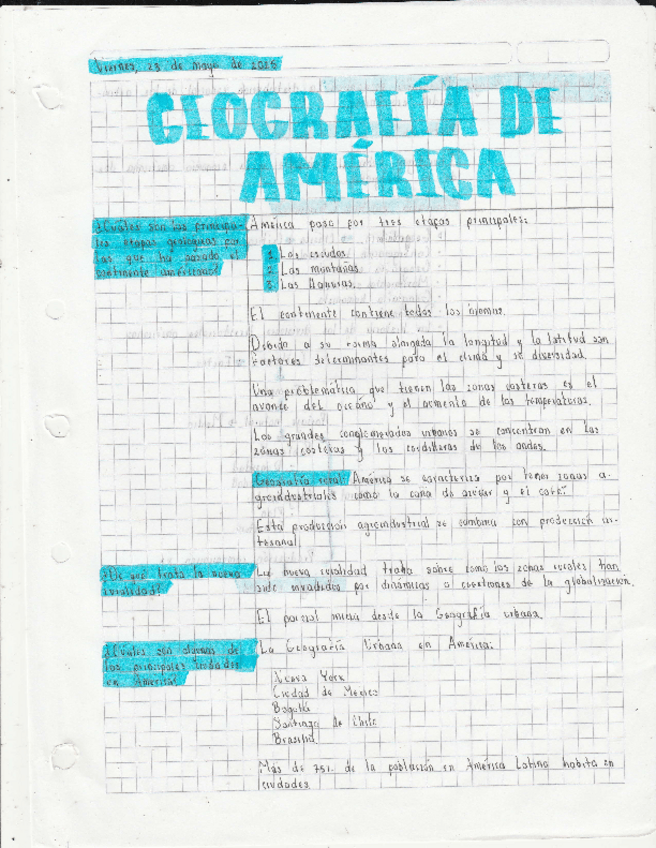 Viernes, 23 de mayo de 2025
GEOGRAFÍA DE
AMÉRICA
¿Cuáles son las principa-
les etapas geológicas por
las que ha pasado el
continente américano?
América pasa por tres etapas principales:
1. Los escudos.
2. Las montañas.
3. Las llanuras.
El continente contiene todos los biomas.
Debido a su forma alargada la longitud y la latitud son
factores determinantes para el clima y su diversidad.
Una problemática que tienen las zonas costeras es el
avance del oceáno y el aumento de las temperaturas.
Los grandes conglomerados urbanos se concentran en las
zonas costeras y las cordilleras de los andes.
Geografía rural: América se caracteriza por tener zonas a-
groindustriales como la caña de azúcar y el café.
Esta producción agroindustrial se combina con producción ar-
tesanal.
¿De qué trata la nueva
ruralidad?
La nueva ruralidad trata sobre como las zonas rurales han
sido invadidas por dinámicas o cuestiones de la globalización.
El parcial inicia desde la Geografía urbana.
¿Cuáles son algunas de
las principales ciudades
en América?
La Geografía Urbana en América:
Nueva York
Ciudad de México
Bogotá
Santiago de Chile
Brasilia.
Más de 75% de la población en América Latina habita en
ciudades.